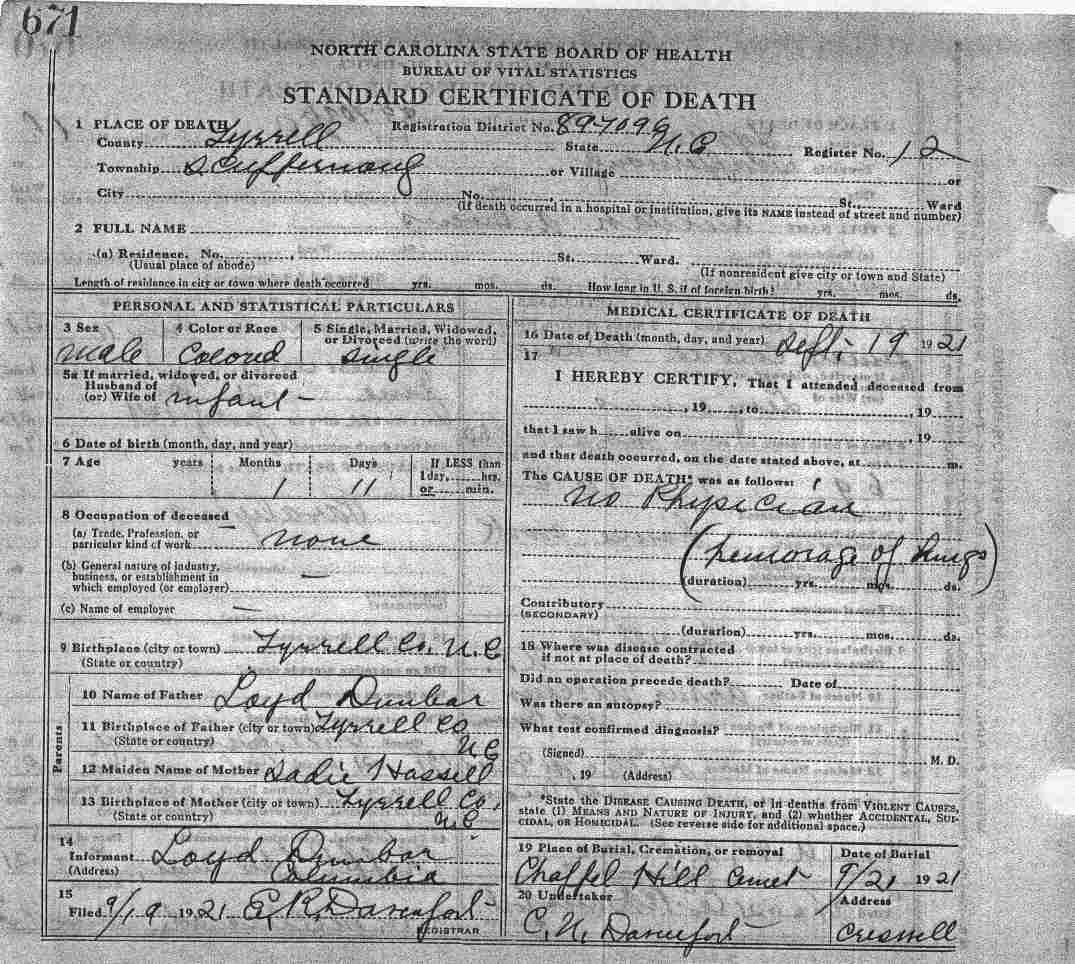 671
NORTH CAROLINA STATE BOARD OF HEALTH
BUREAU OF VITAL STATISTICS
STANDARD CERTIFICATE OF DEATH
1 PLACE OF DEATH Registration District No. 89-7096
County Tyrrell State N.C Register No. 12
Township Scuppernong or Village or
City No. , St., Ward
(If death occurred in a hospital or institution, give its NAME instead of street and number)
2 FULL NAME
(a) Residence. No. , St. Ward.
(Usual place of abode) (If nonresident give city or town and State)
Length of residence in city or town where death occurred yrs. mos. ds. How long in U. S. if of foreign birth? yrs. mos. ds.
PERSONAL AND STATISTICAL PARTICULARS
3 Sex 4 Color or Race 5 Single, Married, Widowed,
or Divorced (write the word)
male Colored single
5a If married, widowed, or divorced
Husband of
(or) Wife of infant -
6 Date of birth (month, day, and year)
7 Age years Months Days If LESS than
1 day, hrs.
1 11 or min.
8 Occupation of deceased
(a) Trade, Profession, or
particular kind of work none
(b) General nature of industry,
business, or establishment in
which employed (or employer) —
(c) Name of employer —
9 Birthplace (city or town) Tyrrell Co. N.C
(State or country)
Parents
10 Name of Father Loyd Dunbar
11 Birthplace of Father (city or town) Tyrrell Co
(State or country) NC
12 Maiden Name of Mother Sadie Hassell
13 Birthplace of Mother (city or town) Tyrrell Co,
(State or country) NC
14
Informant Loyd Dunbar
(Address) Columbia
15
Filed 9/19 1921 E, R, Davenport
REGISTRAR
MEDICAL CERTIFICATE OF DEATH
16 Date of Death (month, day, and year) Sept; 19 1921
17
I HEREBY CERTIFY, That I attended deceased from
, 19 , to , 19
that I saw h alive on , 19
and that death occurred, on the date stated above, at m.
The CAUSE OF DEATH* was as follows:
no Physician
(hemorage of lungs)
(duration) yrs. mos. ds.
Contributory
(SECONDARY)
(duration) yrs. mos. ds.
18 Where was disease contracted
if not at place of death?
Did an operation precede death? Date of
Was there an autopsy?
What test confirmed diagnosis?
(Signed) M. D.
, 19 (Address)
*State the DISEASE CAUSING DEATH, or in deaths from VIOLENT CAUSES,
state (1) MEANS AND NATURE OF INJURY, and (2) whether ACCIDENTAL, SUI-
CIDAL, OR HOMICIDAL. (See reverse side for additional space.)
19 Place of Burial, Cremation, or removal Date of Burial
Chappel Hill Cemet 9/21 1921
20 Undertaker Address
C. N. Davenport Creswell